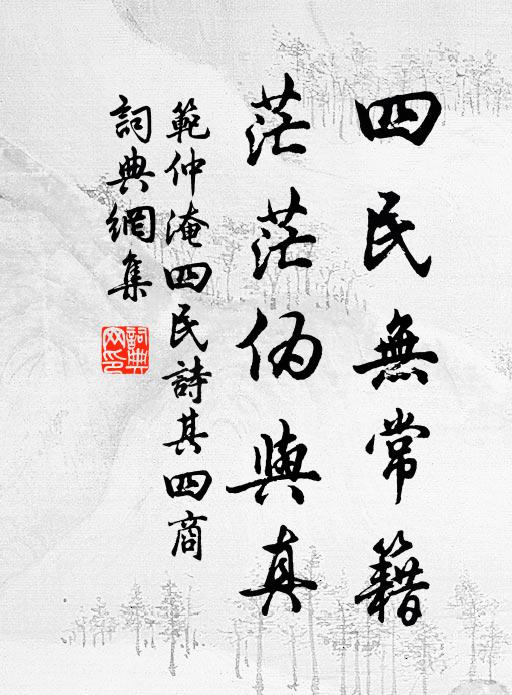 四民無常籍
茫茫偽與真
範仲淹四民詩其四商
詞典網集
詞典網印